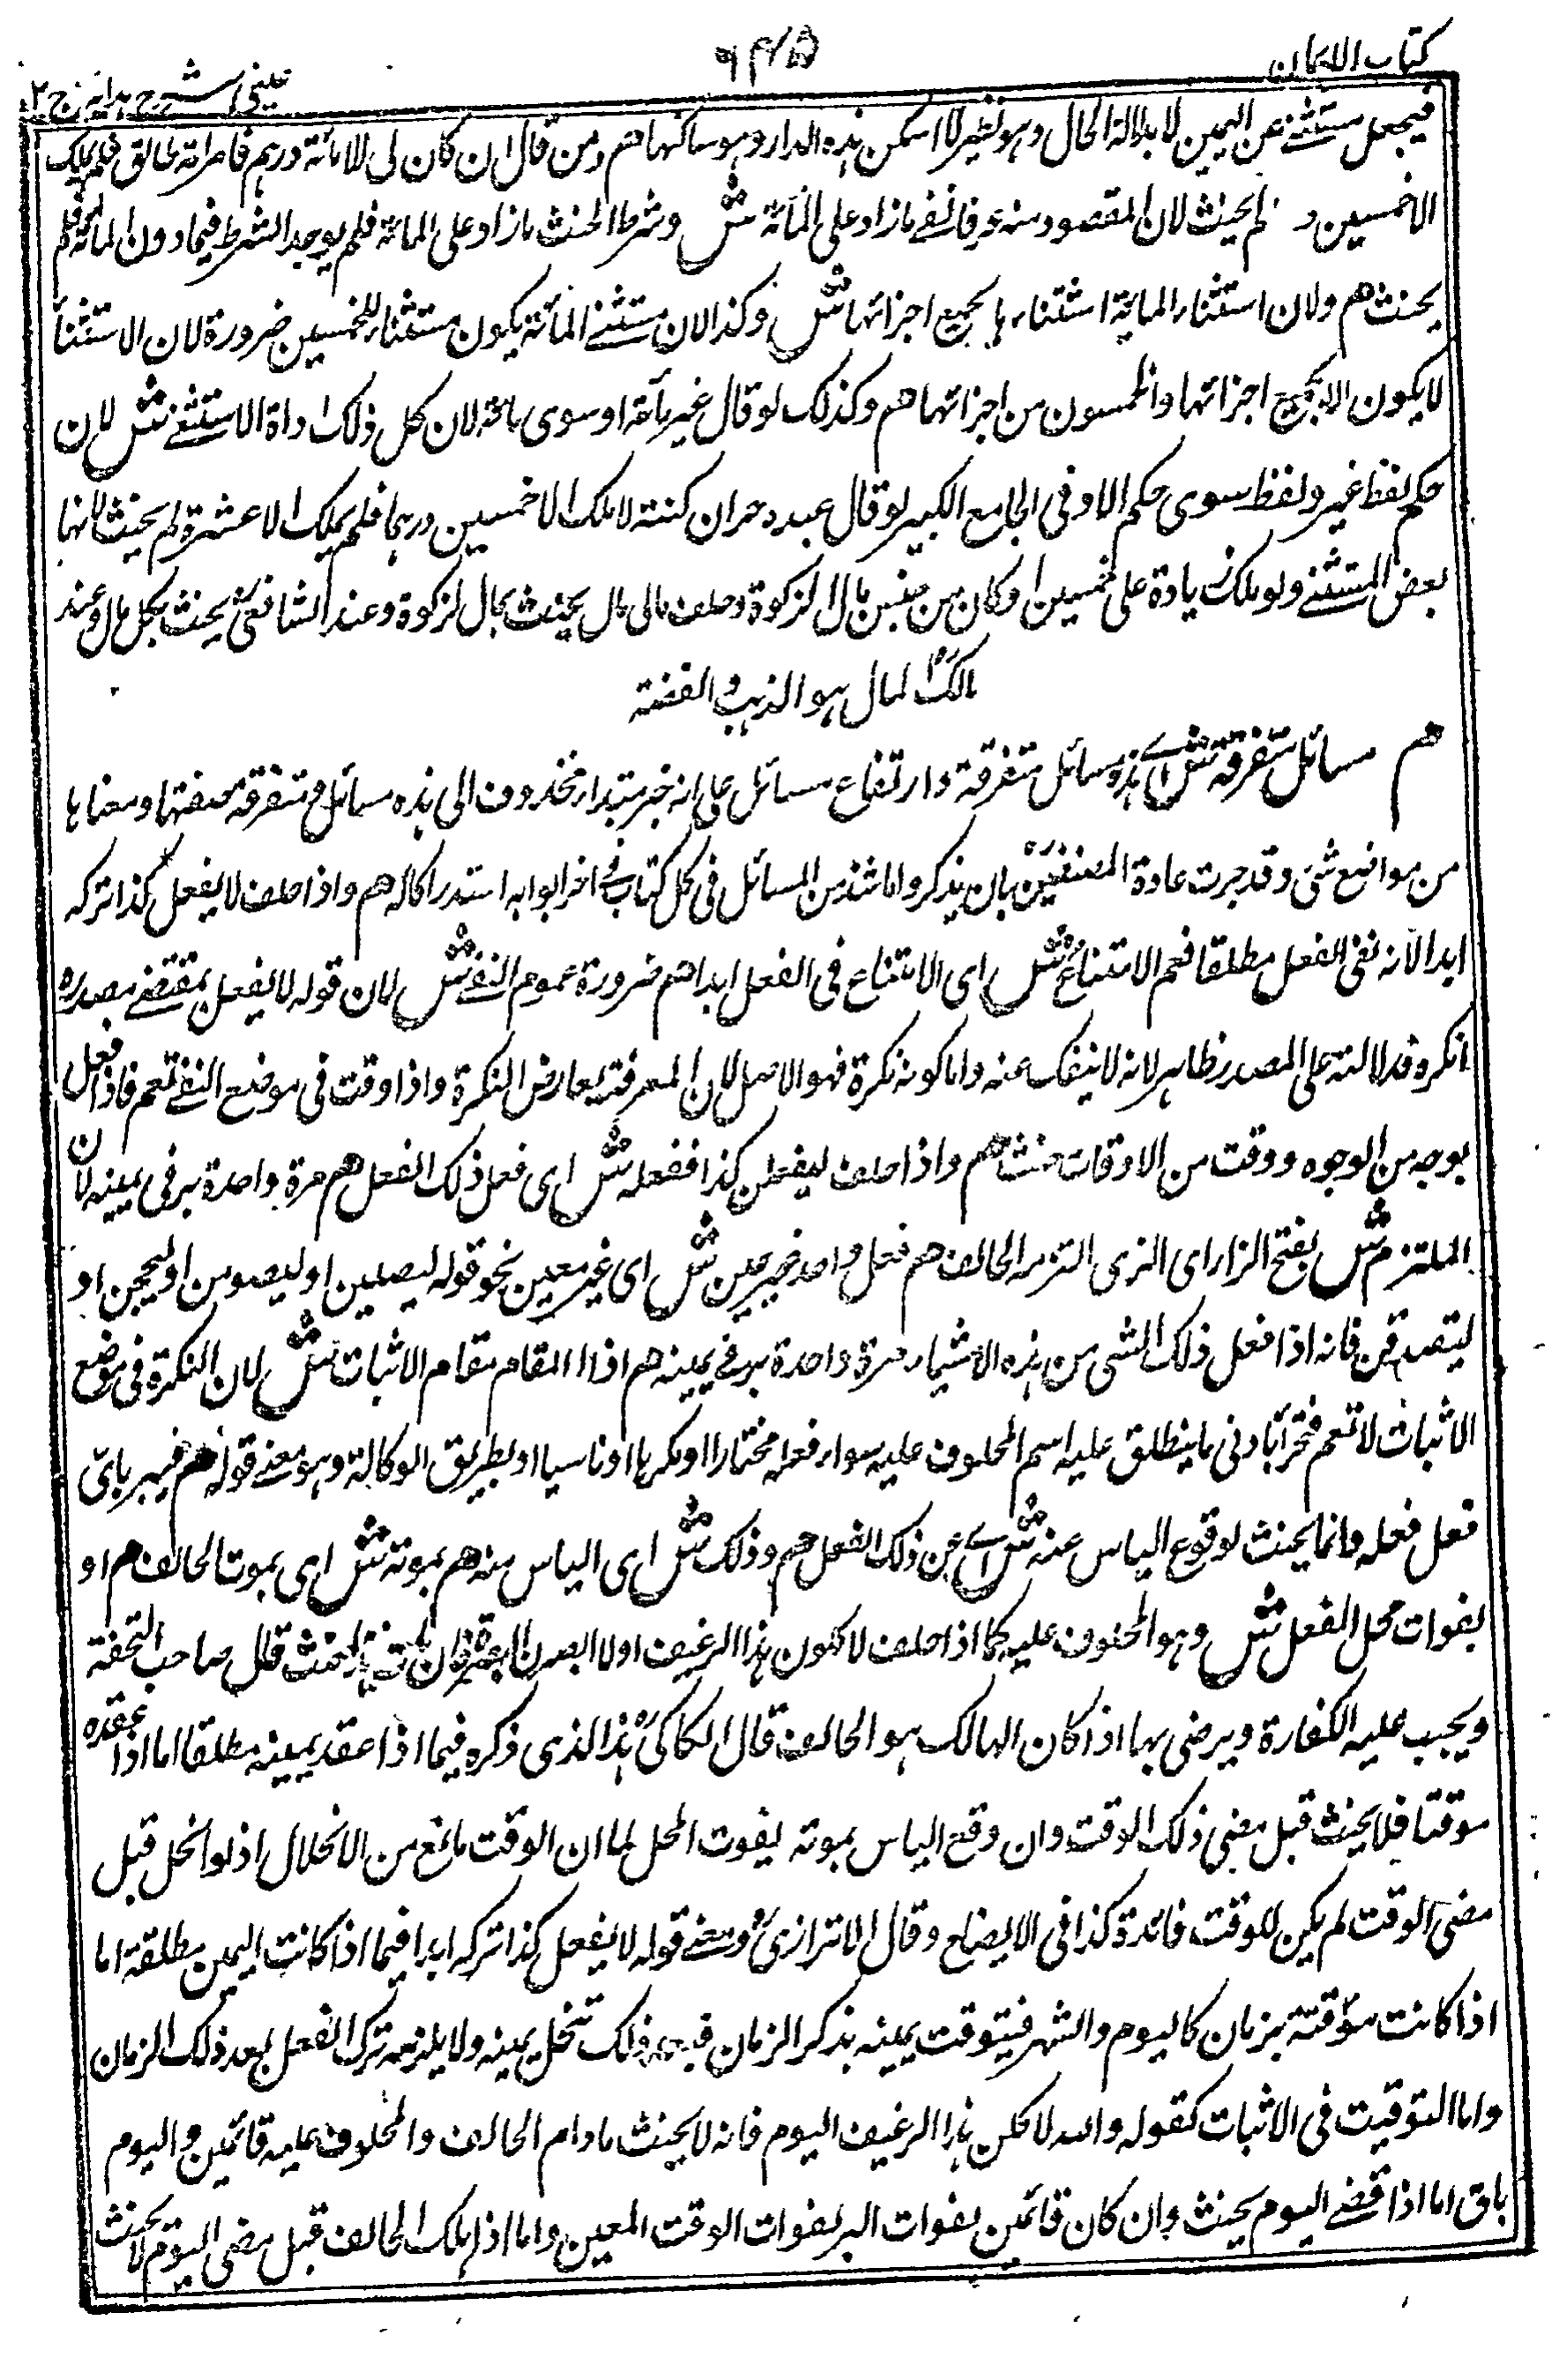 كتاب الايمان
۶۴۵
عینی شرح ہدایہ ج ۲
فيجعل مستثنے عن اليمين لا بدلالة الحال وہو نظير لا اسكن ہذہ الدار وہو ساكنها هم ومن قال ان كان لى الا مائة درہم فامرأته طالق فلم يملك
الا خمسين لم يحنث لان المقصود منه عرفا نفے مازاد على المائة ش وشرط الحنث مازاد على المائة فلم يوجد الشرط فيما دون المائة فلم
يحنث هم ولان استثناء المائة استثناءہا بجميع اجزائها ش وكذا لان مستثنے المائة يكون مستثناء للخمسين ضرورة لان الاستثناء
لا يكون الا بجميع اجزائها والخمسون من اجزائها هم وكذلك لو قال غير مائة او سوى مائة لان كل ذلك اداة الاستثنے ش لان
حكم لفظ غير ولفظ سوى حكم الا وفى الجامع الكبير لو قال عبده حر ان كنت لا املك الا خمسين درہما فلم يملك الا عشرة لم يحنث لانها
بعض المستثنے ولو ملك زيادة على خمسين او كان من جنس مال الزكوة وحلف مالى مال يحنث بمال الزكوة وعند الشافعى يحنث بكل مال وعند
مالك المال ہو الذہب والفضة
هم مسائل متفرقة ش اے ہذہ مسائل متفرقة وارتفاع مسائل على انه خبر مبتداء محذوف اى ہذہ مسائل ومتفرقة صفتها ومعناہا
من مواضع شتى وقد جرت عادة المصنفين بان يذكروا ما شذ من المسائل فى كل كتاب فى اخر ابوابه استدراكا له هم واذا حلف لا يفعل كذا تركه
ابدا لانه نفى الفعل مطلقا فعم الامتناع ش اى الامتناع فى الفعل ابدا هم ضرورة عموم النفے ش لان قوله لا يفعل بمقتضے مصدره
انكرہ فدلالته على المصدر ظاہر لانه لا ينفك عنه واما كونه نكرة فهو الاصل لان المعرفة يعارض النكرة واذا وقعت فى موضع النفے تعم فاذا فعل
بوجه من الوجوه ووقت من الاوقات حنث هم واذا حلف ليفعلن كذا ففعله ش اى فعل ذلك الفعل هم مرة واحدة بر فى يمينه لان
الملتزم ش بفتح الزاء اى الذى التزمه الحالف هم فعل واحد غير عين ش اى غير معين نحو قوله ليصلين او ليصومن او ليحجن او
ليتصدقن فانه اذا فعل ذلك الشى من ہذہ الاشياء مرة واحدة بر فے يمينه هم اذ المقام مقام الاثبات ش لان النكرة فى موضع
الاثبات لا تعم فتجزأ بادنى ما ينطلق عليه اسم المحلوف عليه سواء فعله مختارا او مكرہا او ناسيا او بطريق الوكالة وہو معنے قوله هم فيبر باىّ
فعل فعله وانما يحنث لوقوع الياس عنه ش اے عن ذلك الفعل هم وذلك ش اى الياس منه هم بموته ش اى بموت الحالف هم او
بفوات محل الفعل ش وہو المحلوف عليه كما اذا حلف لاكلن ہذا الرغيف اولا ابصرن البصرة فان مات حنث قال صاحب التحفة
ويجب عليه الكفارة ويرضى بها اذا كان الهالك ہو الحالف قال الكاكى ہذا الذى ذكره فيما اذا عقد يمينه مطلقا اما اذا عقده
موقتا فلا يحنث قبل مضى ذلك الوقت وان وقع الياس بموته ليفوت المحل لما ان الوقت مانع من الانحلال اذ لو انحل قبل
مضى الوقت لم يكن للوقت فائدة كذا فى الايضاح وقال الاترازى ومعنے قوله لا يفعل كذا تركه ابدا فيما اذا كانت اليمين مطلقة اما
اذا كانت مؤقتة بزمان كاليوم والشهر فيتوقت يمينه بذكر الزمان فبعد ذلك تنحل يمينه ولا يلزمه ترك الفعل بعد ذلك الزمان
واما التوقيت فى الاثبات كقوله والله لاكلن ہذا الرغيف اليوم فانه لا يحنث مادام الحالف والمحلوف عليه قائمين واليوم
باق اما اذا قضے اليوم يحنث وان كان قائمين بفوات البر بفوات الوقت المعين واما اذا ہلك الحالف قبل مضى اليوم لا يحنث